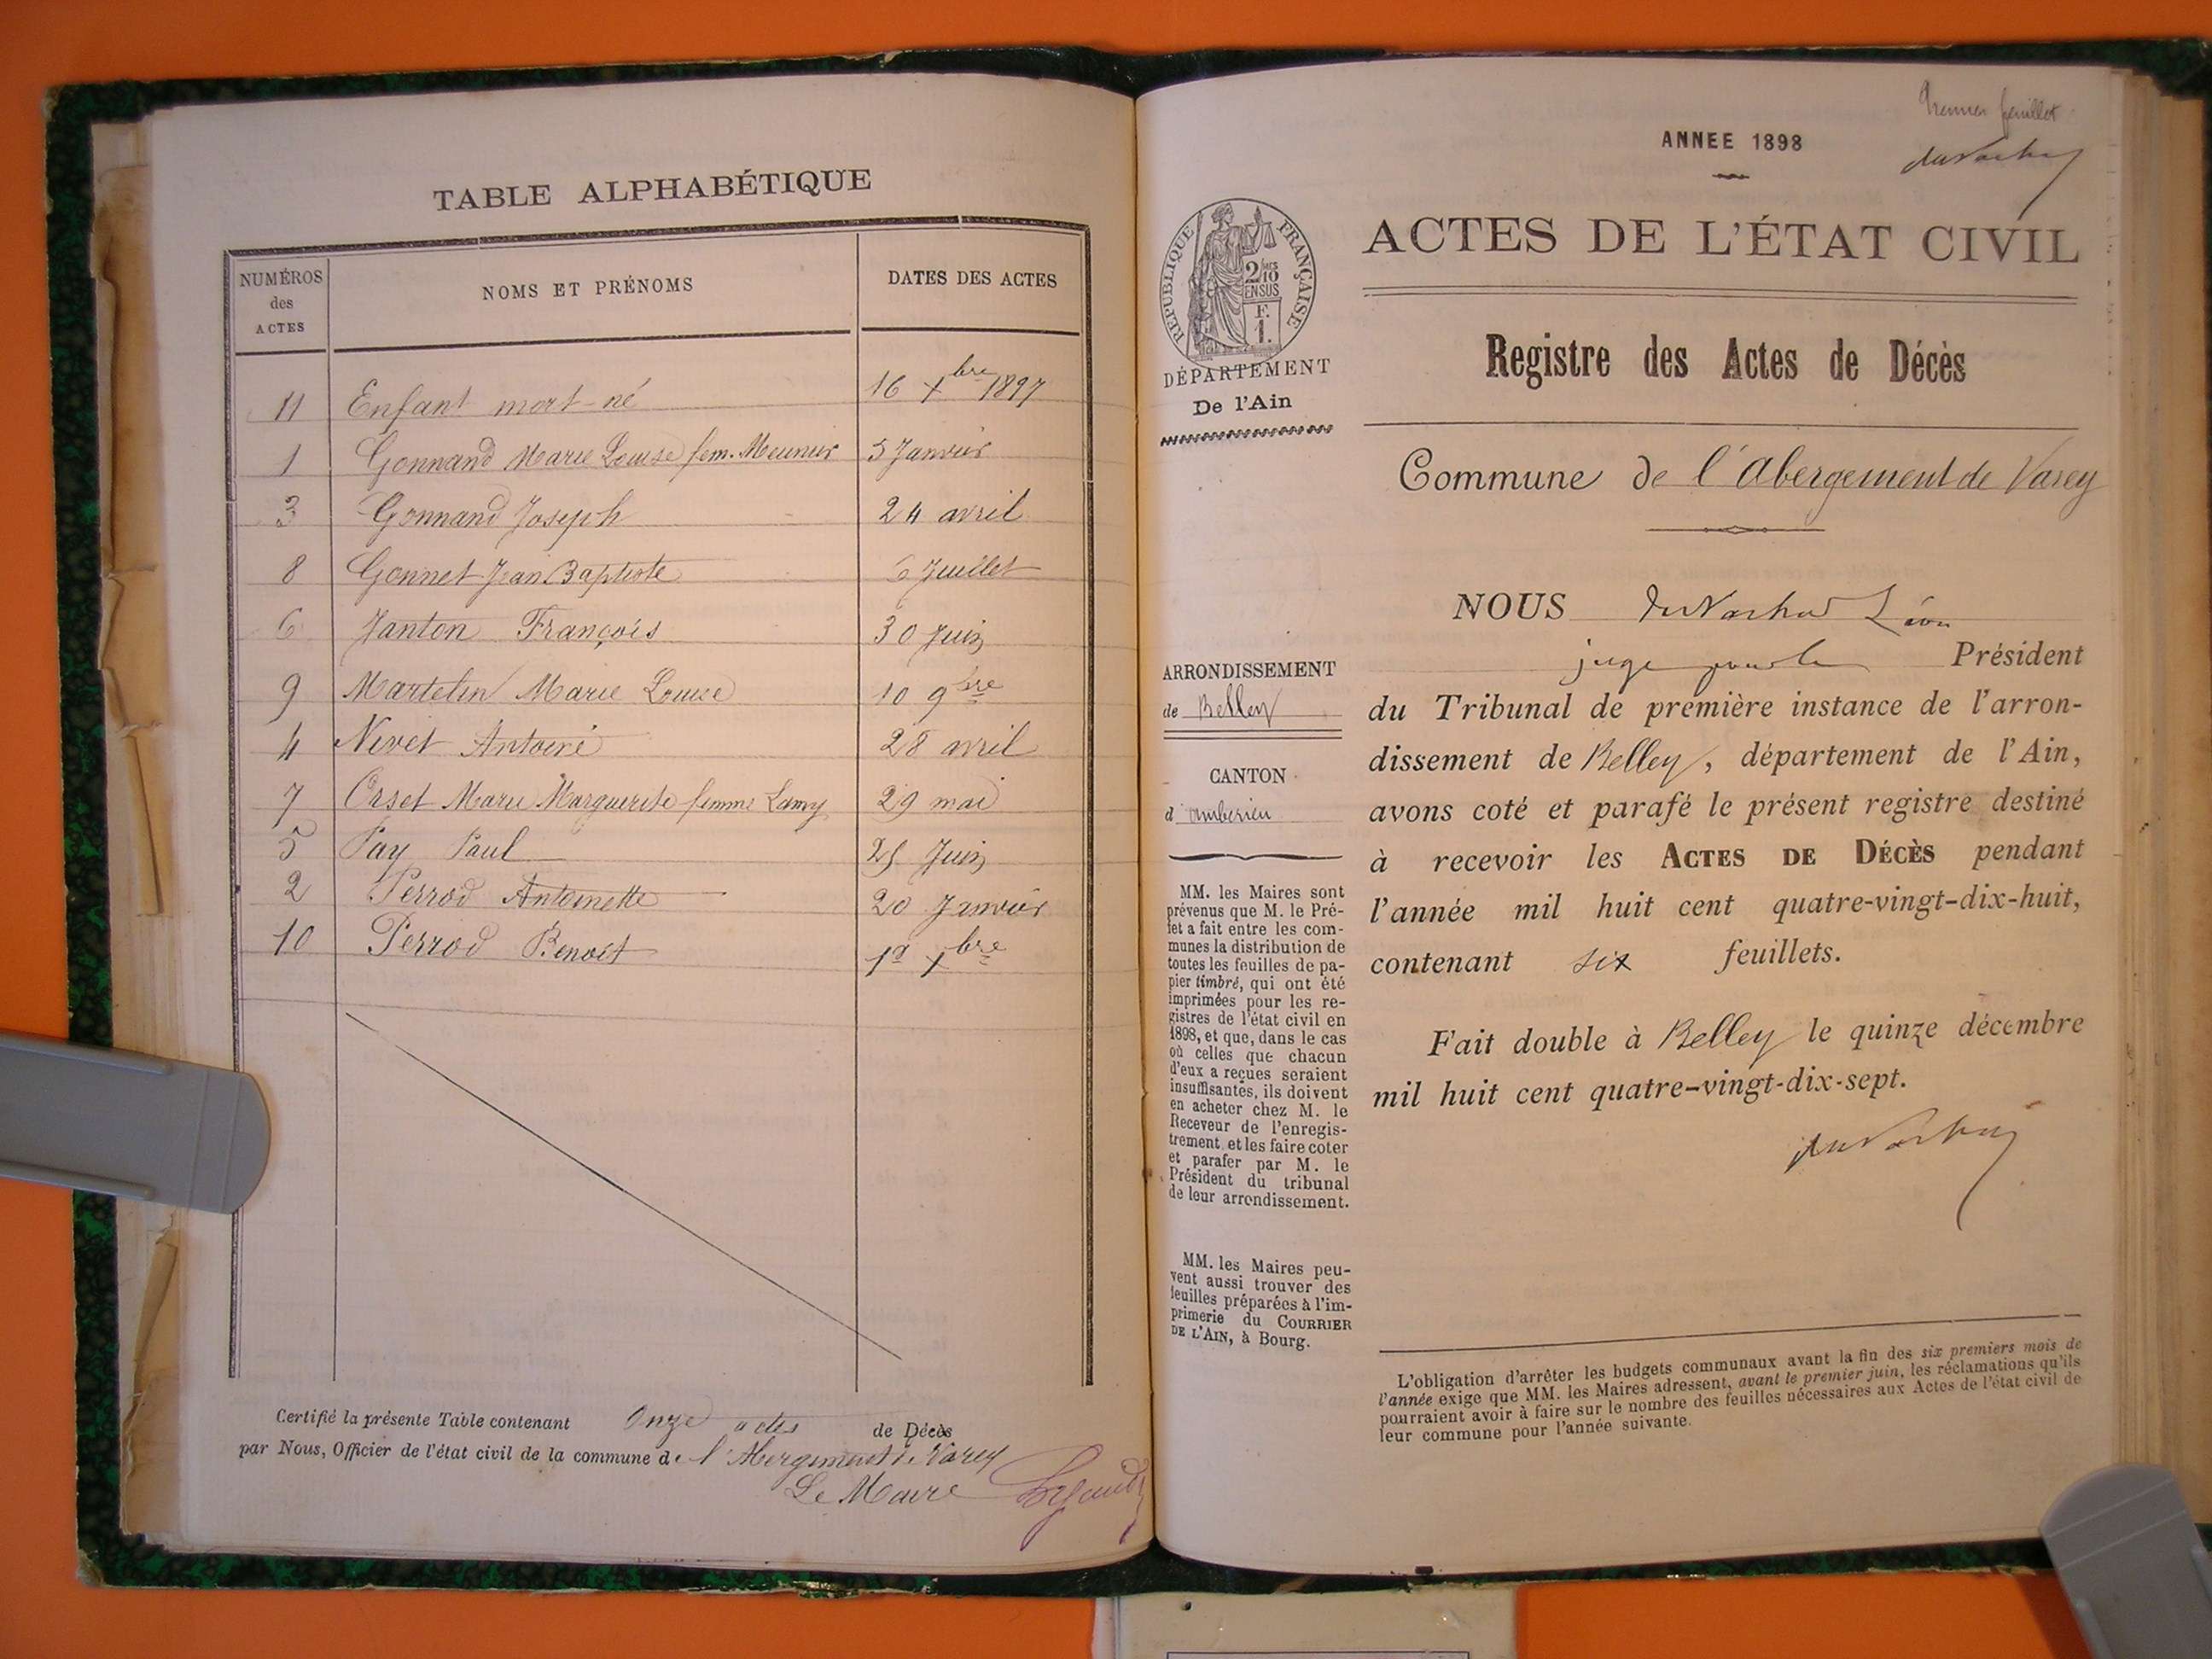 TABLE ALPHABÉTIQUE
NUMÉROS des ACTES
NOMS ET PRÉNOMS
DATES DES ACTES
11 Enfant mort-né 16 Xbre 1897
1 Gonnand Marie Louise fem. Meunier 5 Janvier
3 Gonnand Joseph 24 avril
8 Gonnet Jean Baptiste 6 Juillet
6 Janton François 30 Juin
9 Martelin Marie Louise 10 9bre
4 Nivet Antoine 28 avril
7 Orset Marie Marguerite femme Lamy 29 mai
5 Pay Paul 25 Juin
2 Perrod Antoinette 20 Janvier
10 Perrod Benoit 1er Xbre
Certifié la présente Table contenant Onze actes de Décès
par Nous, Officier de l'état civil de la commune de l'Abergement de Varey
Le Maire
Premier feuillet
ANNEE 1898
REPUBLIQUE FRANÇAISE
2/10
EN SUS
F.
1.
DÉPARTEMENT
De l'Ain
ACTES DE L'ÉTAT CIVIL
Registre des Actes de Décès
Commune de l'Abergement de Varey
ARRONDISSEMENT
de Belley
CANTON
d'ambérieu
MM. les Maires sont
prévenus que M. le Pré-
fet a fait entre les com-
munes la distribution de
toutes les feuilles de pa-
pier timbré, qui ont été
imprimées pour les re-
gistres de l'état civil en
1898, et que, dans le cas
où celles que chacun
d'eux a reçues seraient
insuffisantes, ils doivent
en acheter chez M. le
Receveur de l'enregis-
trement et les faire coter
et parafer par M. le
Président du tribunal
de leur arrondissement.
MM. les Maires peu-
vent aussi trouver des
feuilles préparées à l'im-
primerie du COURRIER
DE L'AIN, à Bourg.
NOUS Léon
juge pour le Président
du Tribunal de première instance de l'arron-
dissement de Belley, département de l'Ain,
avons coté et parafé le présent registre destiné
à recevoir les ACTES DE DÉCÈS pendant
l'année mil huit cent quatre-vingt-dix-huit,
contenant six feuillets.
Fait double à Belley le quinze décembre
mil huit cent quatre-vingt-dix-sept.
L'obligation d'arrêter les budgets communaux avant la fin des six premiers mois de
l'année exige que MM. les Maires adressent, avant le premier juin, les réclamations qu'ils
pourraient avoir à faire sur le nombre des feuilles nécessaires aux Actes de l'état civil de
leur commune pour l'année suivante.